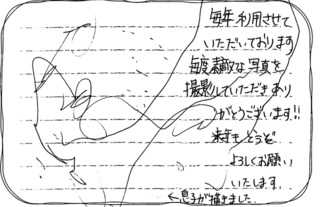 毎年利用させて
いただいております
毎度素敵な写真を
撮影していただきあり
がとうございます!!
来年もどうぞ
よろしくお願い
いたします.
←息子が描きました.